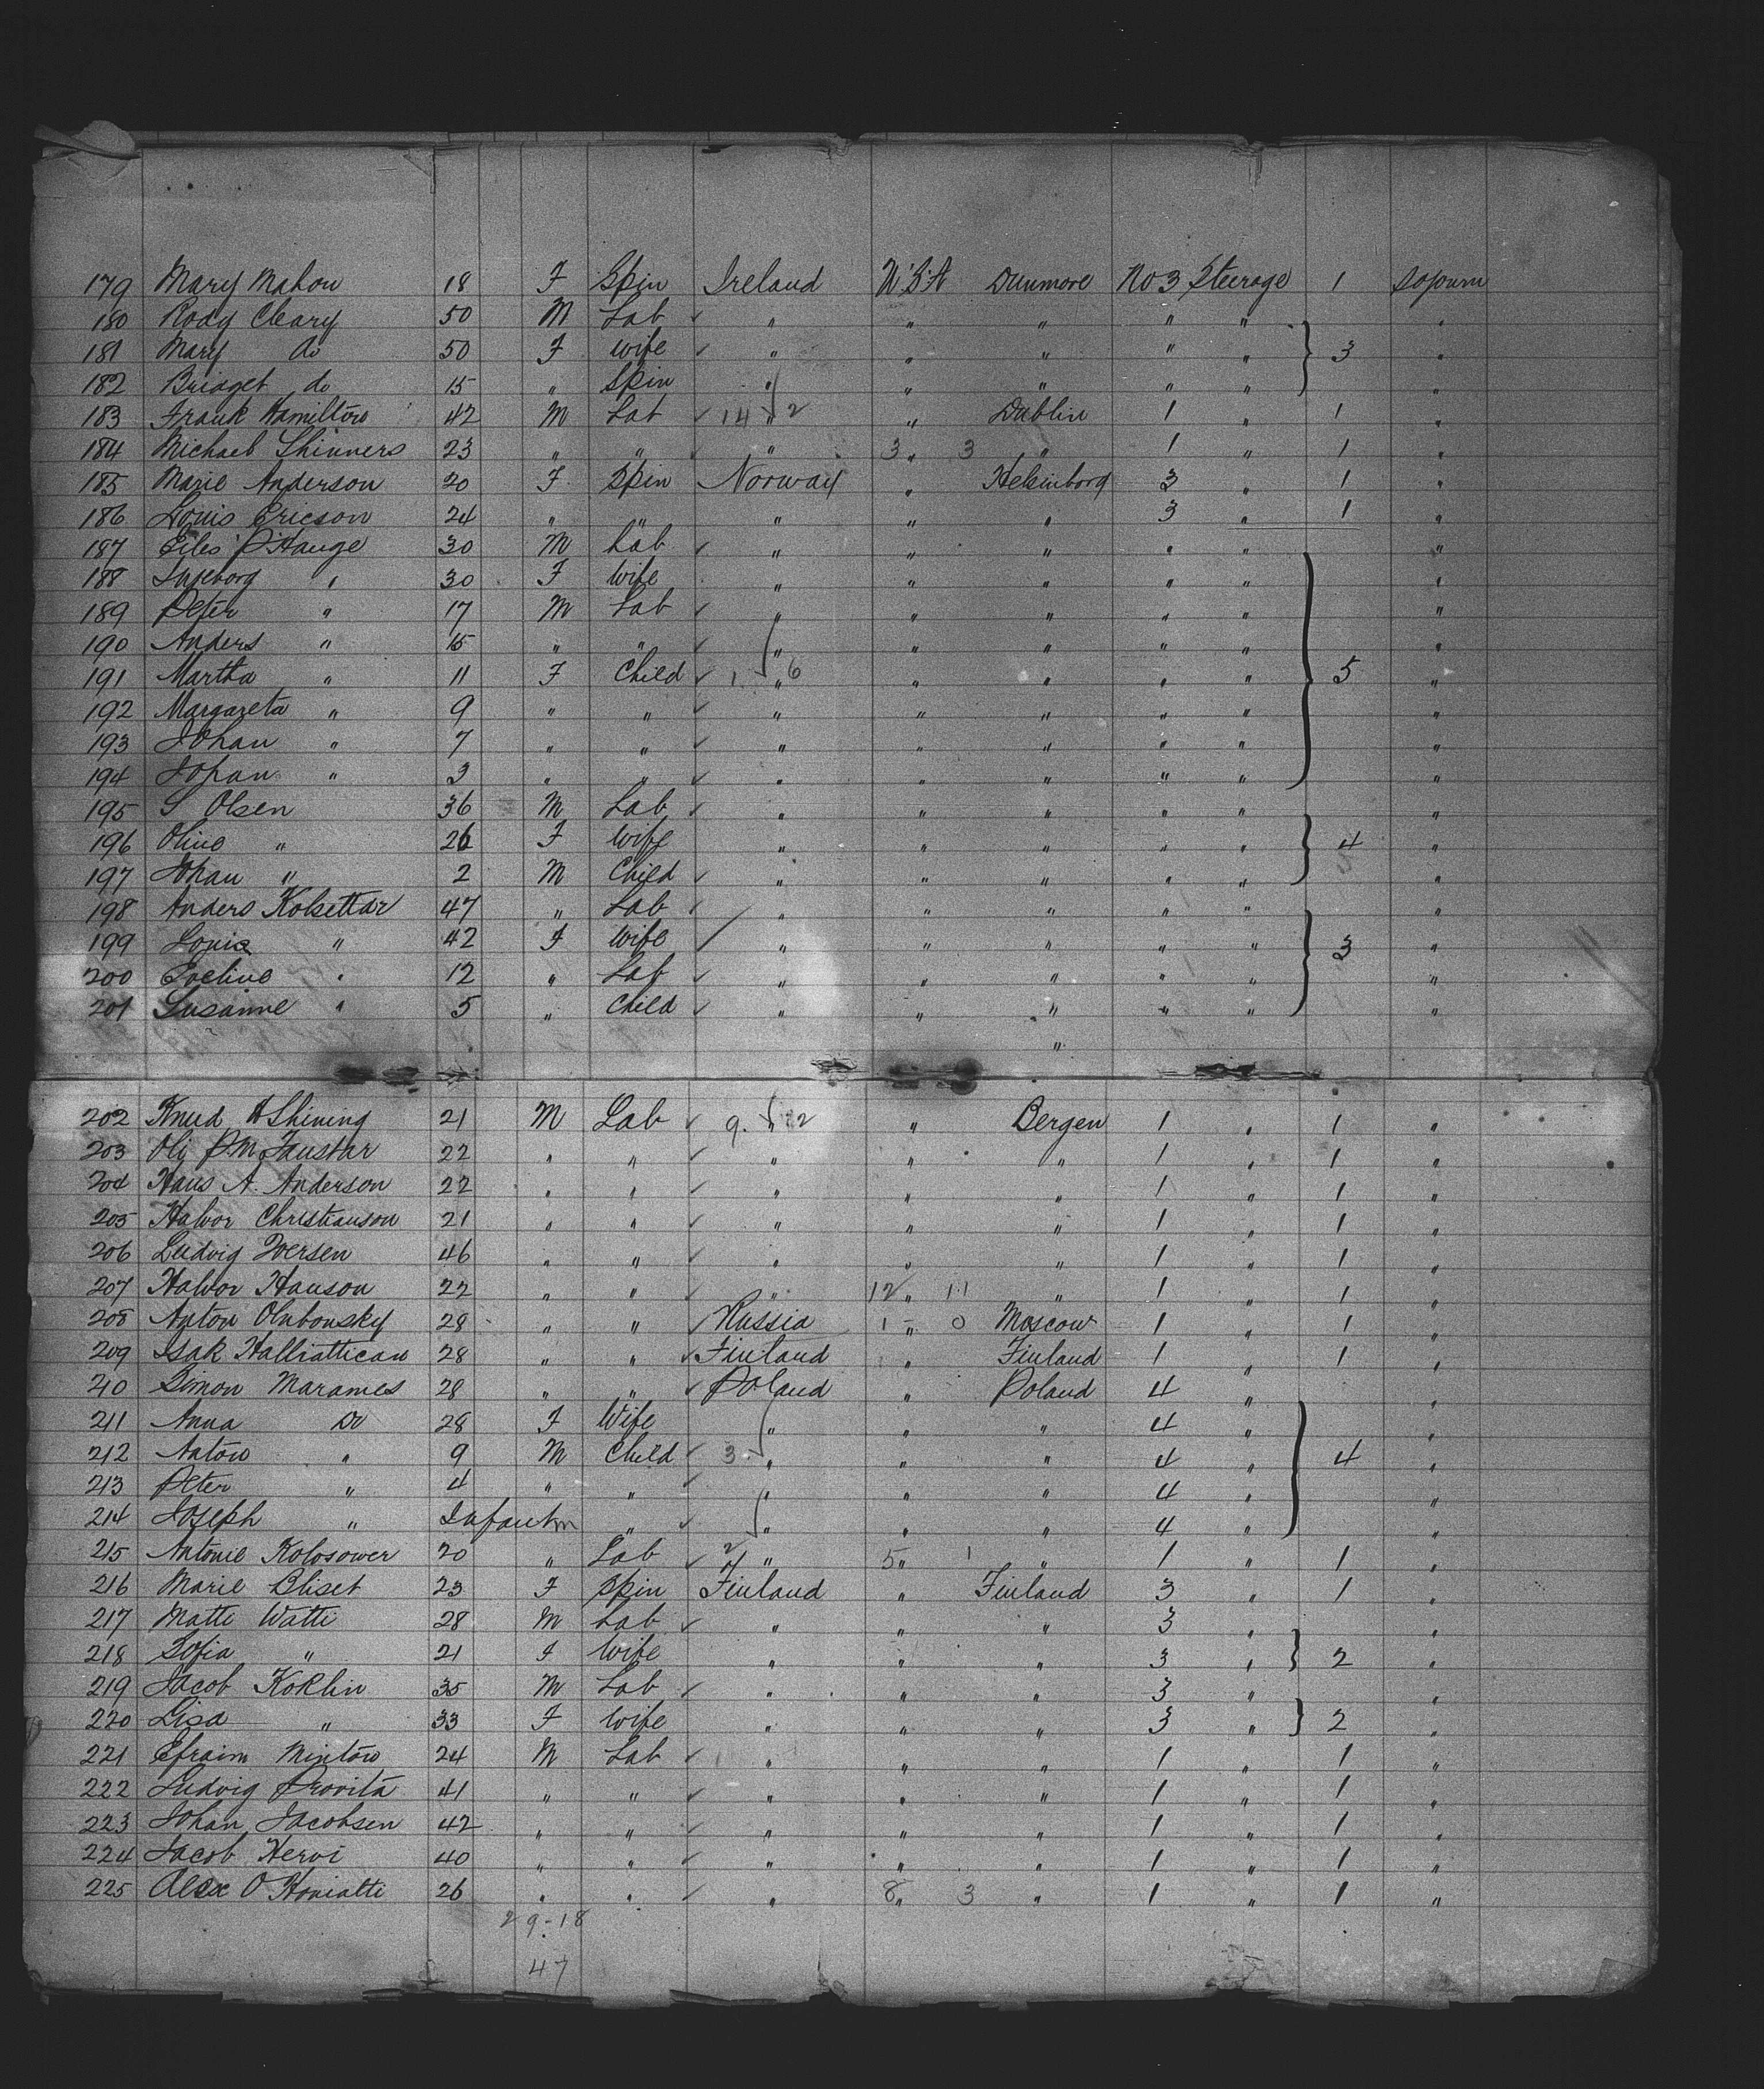 179 Mary Mahon 18 F Spin Ireland U.S.A Dunmore No 3 Steerage 1 Sojourn
180 Rody Cleary 50 M Lab " " " " " "
181 Mary do 50 F Wife " " " " " 3 "
182 Bridget do 15 " Spin " " " " " "
183 Frank Hamilton 42 M Lab 14 " 2 " Dublin 1 " 1 "
184 Michael Shinners 23 " " " 3 " 3 " 1 " 1 "
185 Marie Anderson 20 F Spin Norway " Helsinborg 3 " 1 "
186 Louis Ericson 24 " " " " " 3 " 1 "
187 P Hauge 30 M Lab " " " " " "
188 Ingeborg " 30 F Wife " " " " " "
189 Peter " 17 M Lab " " " " " "
190 Anders " 15 " " " " " " " "
191 Martha " 11 F Child 1 " 6 " " " " 5 "
192 Margareta " 9 " " " " " " " "
193 Johan " 7 " " " " " " " "
194 Johan " 3 " " " " " " " "
195 S Olsen 36 M Lab " " " " " "
196 Oline " 26 F Wife " " " " " 4 "
197 Johan " 2 M Child " " " " " "
198 Anders Kolsettar 47 " Lab " " " " " "
199 Louisa " 42 F Wife " " " " " 3 "
200 Eveline " 12 " Lab " " " " " "
201 Susanne " 5 " Child " " " " " "
"
202 Knud Shining 21 M Lab 9 " 2 " Bergen 1 " 1 "
203 P.M. Faustar 22 " " " " " 1 " 1 "
204 Hans A. Anderson 22 " " " " " 1 " 1 "
205 Halvor Christianson 21 " " " " " 1 " 1 "
206 Ludvig Iversen 46 " " " " " 1 " 1 "
207 Halvor Hanson 22 " " " 12 " 11 " 1 " 1 "
208 Anton Olubonsky 28 " " Russia 1 " 0 Moscow 1 " 1 "
209 Isak Halliattican 28 " " Finland " Finland 1 " 1 "
210 Simon Marames 28 " " Poland " Poland 4 " "
211 Anna Do 28 F Wife " " " 4 " "
212 Anton " 9 M Child 3 " " " 4 " 4 "
213 Peter " 4 " " " " " 4 " "
214 Joseph " Infant m " " " " 4 " "
215 Antonie Kolosower 20 " Lab 2 " 5 " 1 " 1 " 1 "
216 Marie Bliset 23 F Spin Finland " Finland 3 " 1 "
217 Matti Watti 28 M Lab " " " 3 " "
218 Sofia " 21 F Wife " " " 3 " 2 "
219 Jacob Koklin 35 M Lab " " " 3 " "
220 Lisa " 33 F Wife " " " 3 " 2 "
221 Efraim Minton 24 M Lab " " " 1 " 1 "
222 Ludvig Provita 41 " " " " " 1 " 1 "
223 Johan Jacobsen 42 " " " " " 1 " 1 "
224 Jacob Hervi 40 " " " " " 1 " 1 "
225 Alex O Honiatti 26 " " " 8 " 3 " 1 " 1 "
29-18
47